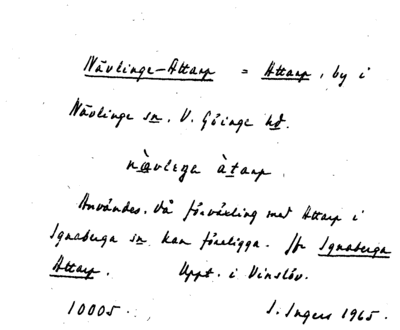 Nävlinge-Attarp = Attarp, by i
Nävlinge sn, V. Göinge hd.
nàvleŋa àtarp.
Användes, då förväxling med Attarp i
Ignaberga sn kan föreligga. Jfr Ignaberga
Attarp. Uppt. i Vinslöv.
10005. I. Ingers 1965.